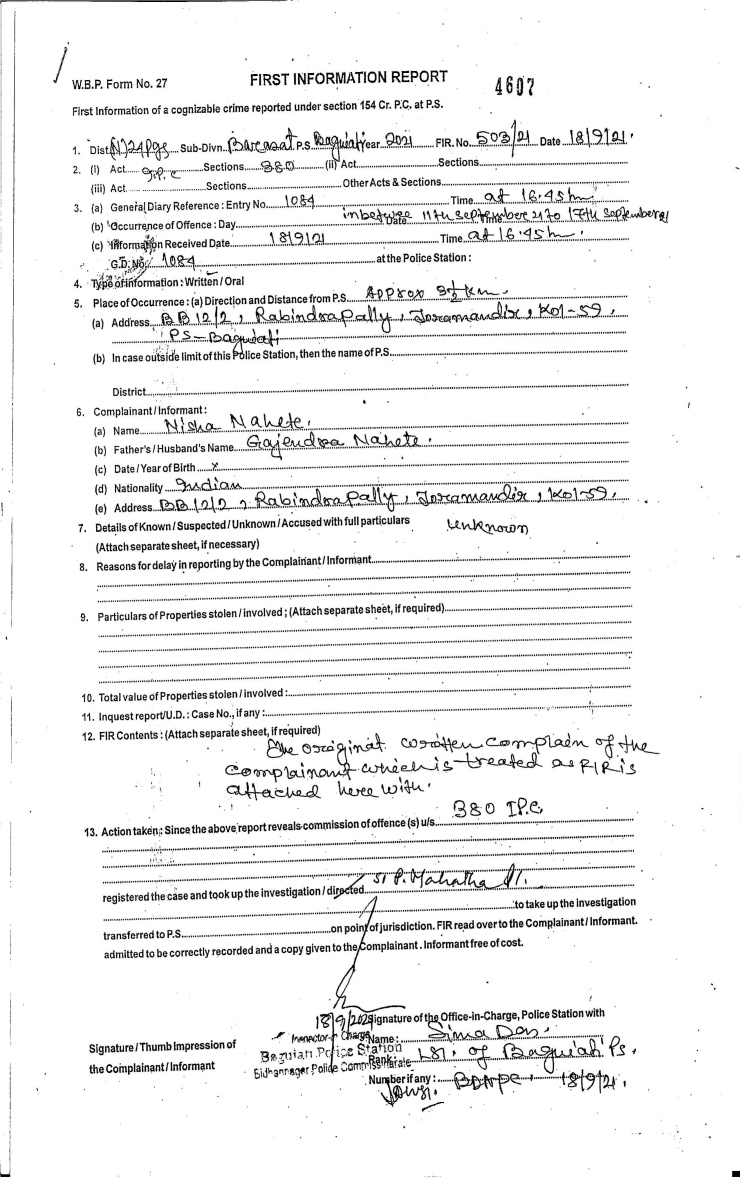 W.B.P. Form No. 27
FIRST INFORMATION REPORT
4607
First Information of a cognizable crime reported under section 154 Cr. P.C. at P.S.
1. Dist. (N) 24 Pgs Sub-Divn. Barasat P.S. Baguiati Year 2021 FIR. No. 503/21 Date 18/9/21.
2. (i) Act I.P.C Sections 380 (ii) Act Sections
(iii) Act Sections Other Acts & Sections
3. (a) General Diary Reference : Entry No. 1084 Time at 16.45 hr
(b) Occurrence of Offence : Day in betwee 11th September 21 to 17th September 21
Date Time
(c) Information Received Date 18/9/21 Time at 16.45 hr.
G.D. No. 1084 at the Police Station :
4. Type of information : Written / Oral
5. Place of Occurrence : (a) Direction and Distance from P.S. Approx 3½ Km.
(a) Address BB 12/2, Rabindrapally, Joramandir, Kol-59,
PS-Baguiati
(b) In case outside limit of this Police Station, then the name of P.S.
District
6. Complainant / Informant :
(a) Name Nisha Nahete.
(b) Father's / Husband's Name Gajendra Nahete.
(c) Date / Year of Birth x
(d) Nationality Indian
(e) Address BB 12/2, Rabindrapally, Joramandir, Kol-59.
7. Details of Known / Suspected / Unknown / Accused with full particulars Unknown
(Attach separate sheet, if necessary)
8. Reasons for delay in reporting by the Complainant / Informant
9. Particulars of Properties stolen / involved ; (Attach separate sheet, if required)
10. Total value of Properties stolen / involved :
11. Inquest report/U.D. : Case No., if any :
12. FIR Contents : (Attach separate sheet, if required)
The original written complain of the
complainant which is treated as FIR is
attached here with.
13. Action taken : Since the above report reveals commission of offence (s) u/s. 380 IPC.
registered the case and took up the investigation / directed SI P. Mahatha
to take up the investigation
transferred to P.S. on point of jurisdiction. FIR read over to the Complainant / Informant.
admitted to be correctly recorded and a copy given to the Complainant . Informant free of cost.
18/9/2021 Signature of the Office-in-Charge, Police Station with
Signature / Thumb Impression of
the Complainant / Informant
Inspector in Charge
Baguiati Police Station
Bidhannagar Police Commissionerate
Name : Sima Das.
Rank : LSI. of Baguiati PS.
Number if any : BDNPC 18/9/21.